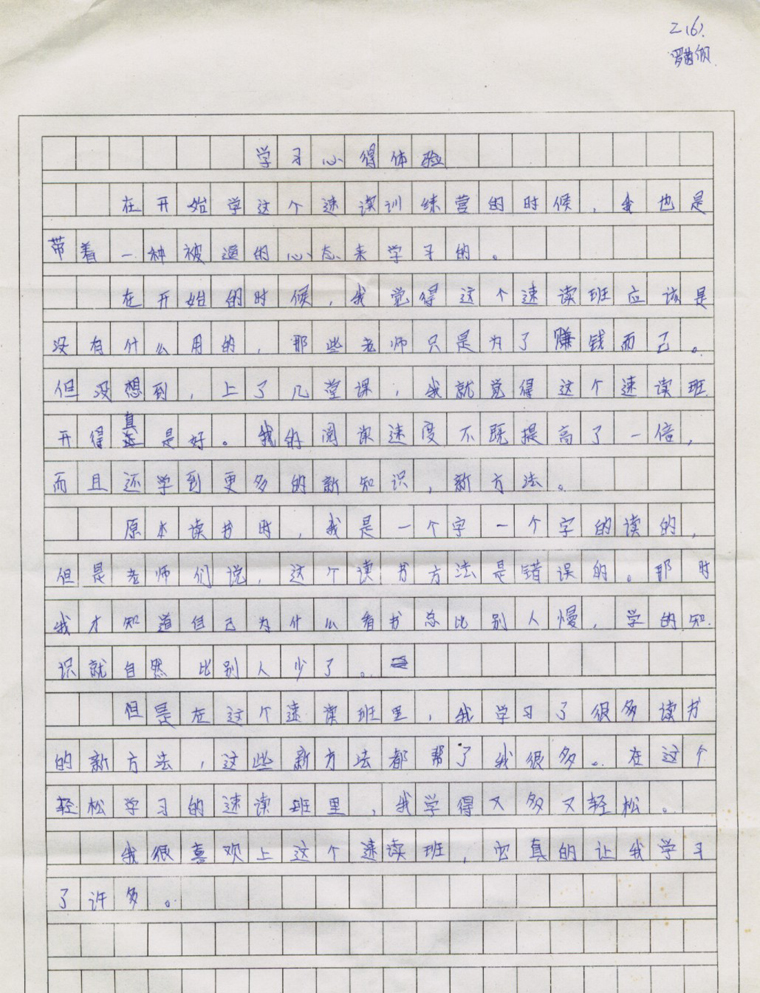 2(6).
学习心得体验
在开始学这个速读训练营的时候,我也是
带着一种被逼的心态来学习的。
在开始的时候,我觉得这个速读班应该是
没有什么用的,那些老师只是为了赚钱而已。
但没想到,上了几堂课,我就觉得这个速读班
开得真是好。我的阅读速度不既提高了一倍,
而且还学到更多的新知识,新方法。
原本读书时,我是一个字一个字的读的,
但是老师们说,这个读书方法是错误的。那时
我才知道自己为什么看书总比别人慢,学的知
识就自然比别人少了。
但是在这个速读班里,我学习了很多读书
的新方法,这些新方法都帮了我很多。在这个
轻松学习的速读班里,我学得又多又轻松。
我很喜欢上这个速读班,它真的让我学习
了许多。